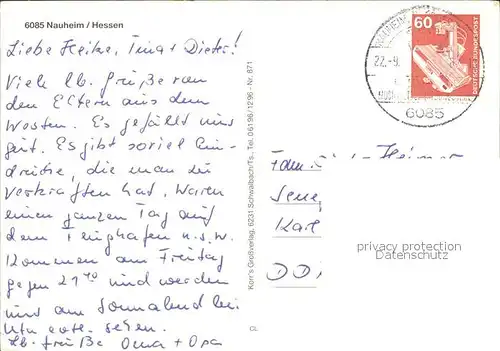 6085 Nauheim / Hessen
Liebe Heike, Tina + Dieter!
Viele lb. Grüße von
den Eltern aus dem
Westen. Es gefällt uns
gut. Es gibt soviel Ein-
drücke, die man zu
verkraften hat. Waren
einen ganzen Tag auf
dem Flughafen u.s.w.
Kommen am Freitag
gegen 21 und werden
uns am Sonnabend bei
evtl. sehen.
Lb. Grüße Oma + Opa
Korr's Großverlag, 6231 Schwalbach/Ts., Tel. 06196/1296 - Nr. 871
60
DEUTSCHE BUNDESPOST
22.-9.
6085
Fam.
Karl
DD
privacy protection
Datenschutz